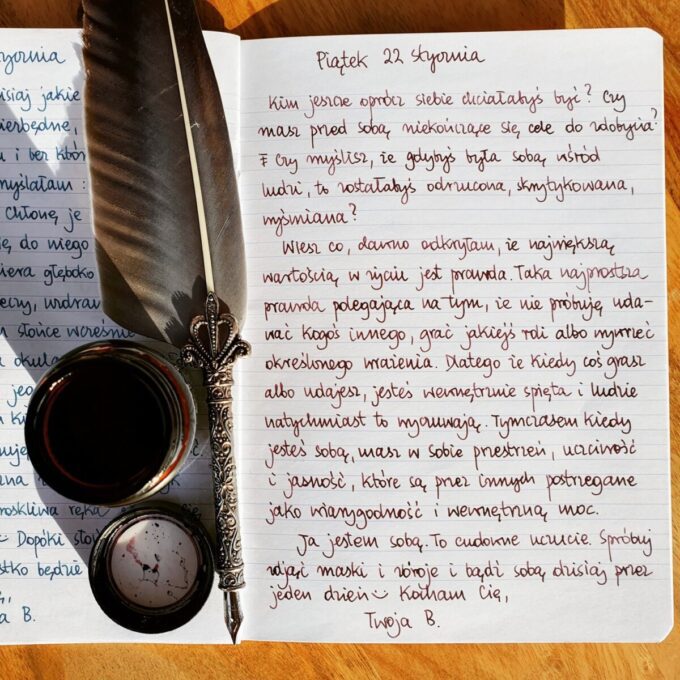 stycznia
isiaj jakie
ierbędne,
u i bez któr
myślałam :
Chłonę je
ię, do niego
iera głęboko
n słońce wcześnie
Dopóki
stko będzie
a B.
Piątek 22 stycznia
Kim jeszcze oprócz siebie chciałabyś być? Czy
masz przed sobą niekończące się cele do zdobycia?
Czy myślisz, że gdybyś była sobą wśród
ludzi, to zostałabyś odrzucona, skrytykowana,
wyśmiana?
Wiesz co, dawno odkryłam, że największą
wartością w życiu jest prawda. Taka najprostsza
prawda polegająca na tym, że nie próbuję uda-
wać kogoś innego, grać jakiejś roli albo wywrzeć
określonego wrażenia. Dlatego że kiedy coś grasz
albo udajesz, jesteś wewnętrznie spięta i ludzie
natychmiast to wyczuwają. Tymczasem kiedy
jesteś sobą, masz w sobie przestrzeń, uczciwość
i jasność, które są przez innych postrzegane
jako wiarygodność i wewnętrzną moc.
Ja jestem sobą. To cudowne uczucie. Spróbuj
zdjąć maski i zbroje i bądź sobą dzisiaj przez
jeden dzień Kocham Cię,
Twoja B.